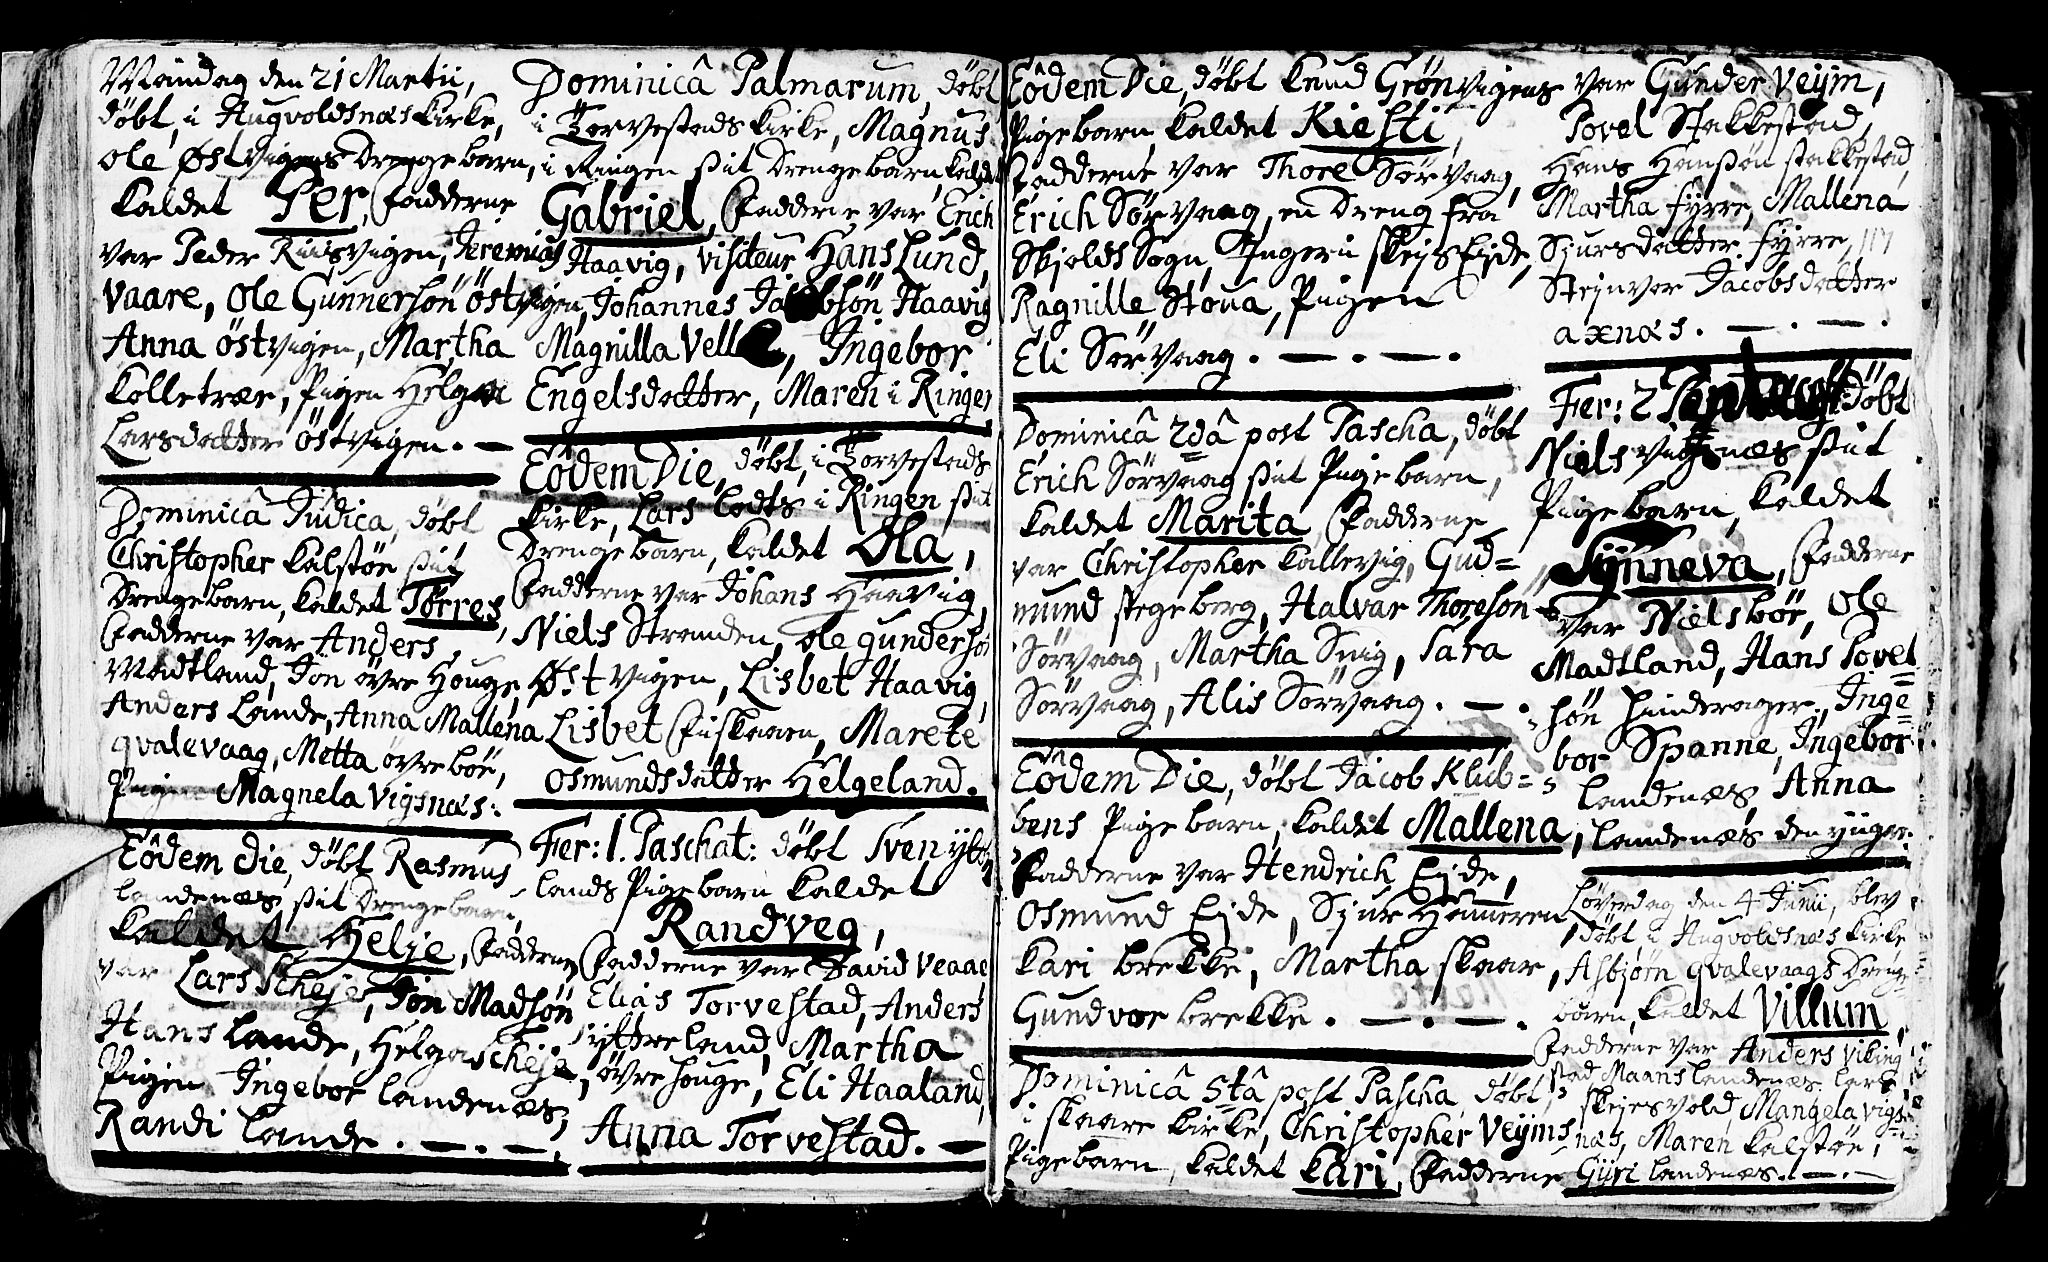 Mandag den 21 Martii,
døbt, i Augvoldsnæs Kirke,
Ole Østvigens Drengebarn,
kaldet Per, Fadderne
var Peder Risvigen, Jeremias
Vaare, Ole Gunnersön Östvigen,
Anna östvigen, Martha
Kolletræe, Pigen Helga
Larsdatter Östvigen. —
Dominicâ Judica, döbt
Christopher Kalstöe sit
Drengebarn, kaldet Törres,
Fadderne var Anders
Madtland, Jon övre Houge,
Anders Lande, Anna Mallena
qvalevaag, Metta övreböe,
Pigen Magnela Vigsnæs:
Eôdem die, döbt Rasmus
Landenæs sit Drengebarn,
kaldet Helje, Fadderne
var Lars Scheje, Jon Madsön
Hans Lande, Helga Scheje,
Pigen Ingebor Landenæs,
Randi Lande. — . — .
Dominicâ Palmarum, döbt
i Torvestads Kirke, Magnus
i Ringen sit Drengebarn, kaldet
Gabriel, Fadderne var Erich
Haavig, Visiteur Hans Lund,
Johannes Jacobsön Haavig
Magnilla, Ingebor
Engelsdatter, Maren i Ringen
Eôdem Die, döbt, i Torvestads
Kirke, Lars Lodts i Ringen sit
Drengebarn, kaldet Ola,
Fadderne var Johans Haavig,
Niels Stranden, Ole Gundersön
Østvigen, Lisbet Haavig,
Lisbet Fiskaaen, Marete
Osmundsdatter Helgeland.
Fer: 1. Paschat: döbt Sven ytre
lands Pigebarn kaldet
Randveg,
Fadderne var David Veaae,
Elias Torvestad, Anders
yttreland, Martha
övre houge, Eli Haaland,
Anna Torvestad. —
Eôdem Die, döbt Knud Grönvigens
Pigebarn, kaldet Kiesti,
Fadderne var Thore Sörvaag,
Erich Sörvaag, en Dreng fra
Skjolds Sogn, Ingeri Skejs Eide,
Ragnille Stoua, Pigen
Eli Sörvaag. — . — .
Dominicâ 2dâ post Pascha, döbt
Erich Sörvaag sit Pigebarn,
kaldet Marita, Fadderne
var Christopher Kallevig, Gud=
mund Stegeberg, Halvar Thoresön
Sörvaag, Martha Snig, Sara
Sörvaag, Alis Sörvaag. — .
Eôdem Die, döbt Jacob Klub=
bens Pigebarn, kaldet Mallena,
Fadderne var Hendrich Ejde,
Osmund Ejde, Sjur Hameren
Kari Brekke, Martha Skaar,
Gundvor Brekke. — . — .
Dominicâ 5tâ post Pascha, döbt,
i Skaare Kirke, Christopher Veyms
Pigebarn, kaldet Kari, Fadderne
var Gunder Veym,
Povel Stakkestad,
Hans Hansön Stakkestad,
Martha Fyrre, Mallena
Sjursdatter Fyrre,
Stejnvor Jacobsdatter
axnæs. — . — .
Fer: 2 Pentecost: döbt
Niels Vigsnæs sit
Pigebarn, kaldet
Synneva, Fadderne
var Niels böe, Ole
Madtland, Hans Povel=
sön Hinderager, Inge=
bor Spanne, Ingebor
Landenæs, Anna
Landenæs den yngre.
Löverdag den 4 Junii, blev
döbt i Augvoldsnæs Kirke
Asbjørn qvalevaags Drenge=
barn, kaldet Villum,
Fadderne var Anders Viking
stad, Maans Landenæs, Lars
Skejesvold, Mangela Vigs=
næs, Maren Kalstöe,
Gyri Landenæs. — . —